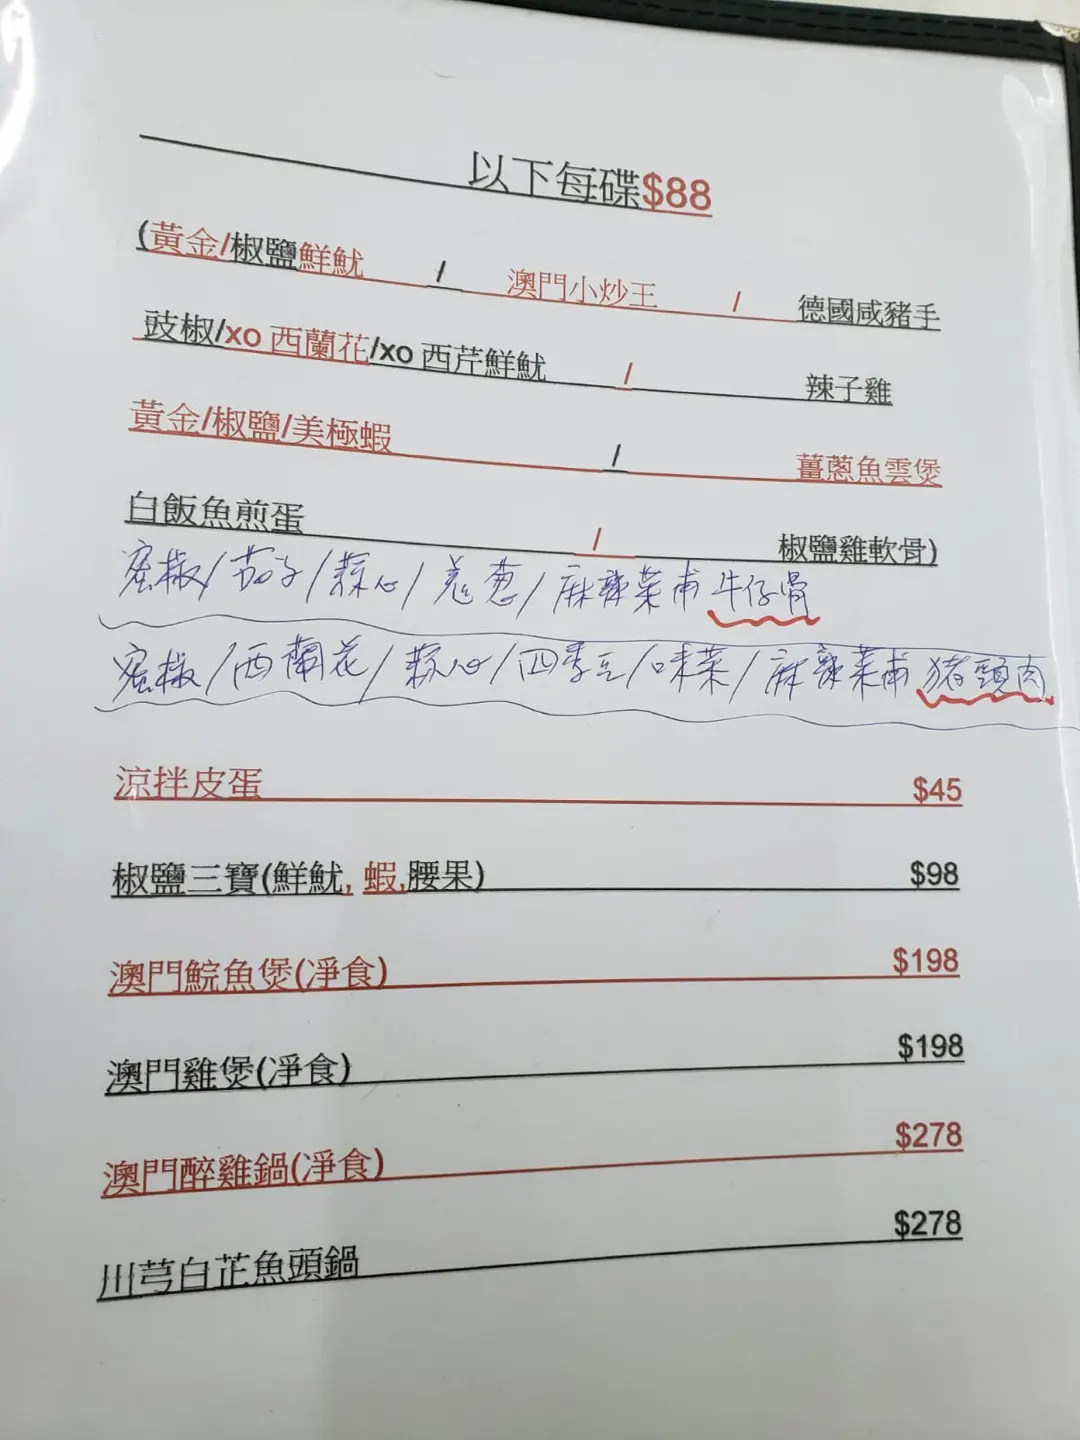 以下每碟$88
(黃金/椒鹽鮮魷 / 澳門小炒王 / 德國咸豬手
豉椒/xo 西蘭花/xo 西芹鮮魷 / 辣子雞
黃金/椒鹽/美極蝦 / 薑蔥魚雲煲
白飯魚煎蛋 / 椒鹽雞軟骨)
蜜椒/茄子/蒜心/羗葱/麻辣菜甫牛仔骨
蜜椒/西蘭花/蒜心/四季豆/味菜/麻辣菜甫猪頭肉
涼拌皮蛋 $45
椒鹽三寶(鮮魷, 蝦,腰果) $98
澳門鯇魚煲(淨食) $198
澳門雞煲(淨食) $198
澳門醉雞鍋(淨食) $278
川芎白芷魚頭鍋 $278